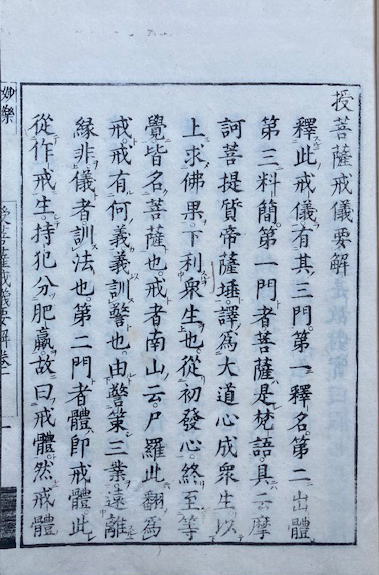 授菩薩戒儀要解
釋此戒儀有其三門。第一釋名。第二出體
第三料簡。第一門者菩薩是梵語。具云摩
訶菩提質帝薩埵。譯爲大道心成衆生。以
上求佛果。下利衆生也。從初發心。終至等
覺皆名菩薩也。戒者南山云。尸羅此翻爲
戒。戒有何義。義訓警也。由警策三業。遠離
緣非。儀者訓法也。第二門者體即戒體。此
從作戒生。持犯分肥羸。故曰戒體。然戒體
妙樂
菩薩戒儀要解卷
一